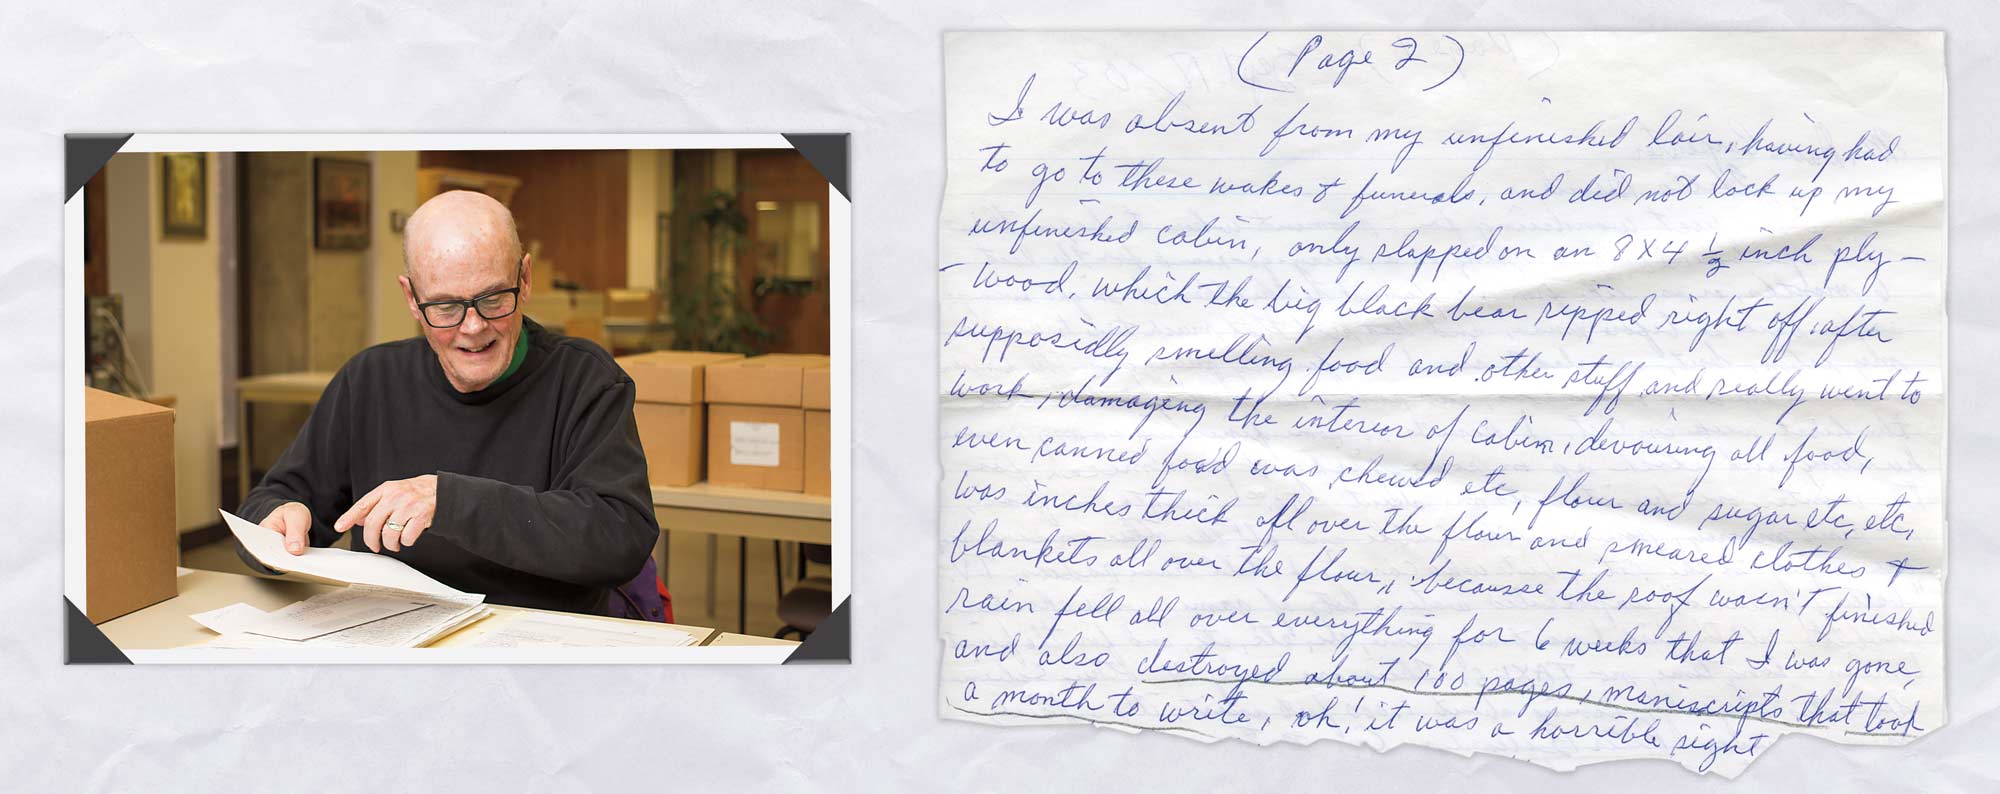 ( Page 2 )
I was absent from my unfinished lair, having had
to go to these wakes & funerals, and did not lock up my
unfinished cabin, only slapped on an 8 X 4 1/2 inch ply-
wood, which the big black bear ripped right off, after
supposidly smelling food and other stuff, and really went to
work, damaging the interior of cabin, devouring all food,
even canned food was chewed etc, flour and sugar etc, etc,
was inches thick all over the flour and smeared clothes &
blankets all over the flour, becausse the roof wasn't finished
rain fell all over everything for 6 weeks that I was gone,
and also destroyed about 100 pages, maniscripts that took
a month to write, oh! it was a horrible sight